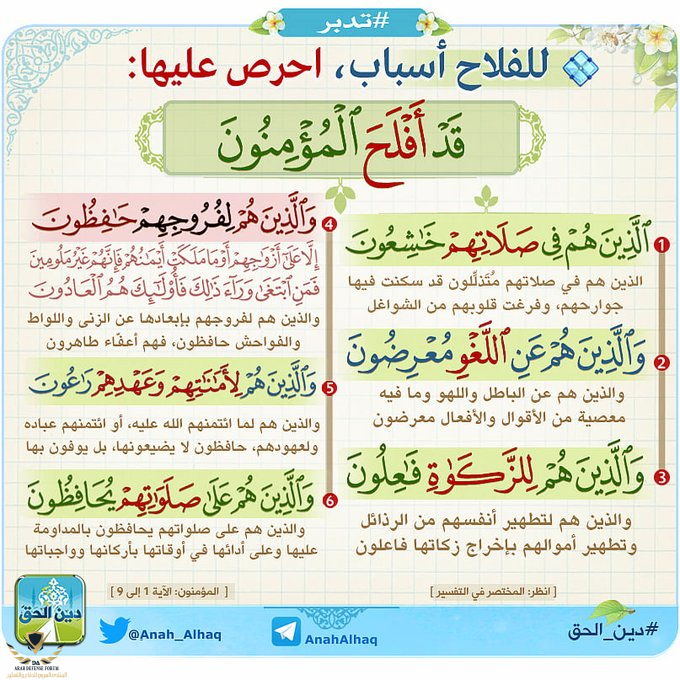 #تدبر
للفلاح أسباب، احرص عليها:
قَدْ أَفْلَحَ ٱلْمُؤْمِنُونَ
1 ٱلَّذِينَ هُمْ فِى صَلَاتِهِمْ خَٰشِعُونَ
الذين هم في صلاتهم مُتَذلِّلون قد سكنت فيها
جوارحهم، وفرغت قلوبهم من الشواغل
2 وَٱلَّذِينَ هُمْ عَنِ ٱللَّغْوِ مُعْرِضُونَ
والذين هم عن الباطل واللهو وما فيه
معصية من الأقوال والأفعال معرضون
3 وَٱلَّذِينَ هُمْ لِلزَّكَوٰةِ فَٰعِلُونَ
والذين هم لتطهير أنفسهم من الرذائل
وتطهير أموالهم بإخراج زكاتها فاعلون
4 وَٱلَّذِينَ هُمْ لِفُرُوجِهِمْ حَٰفِظُونَ
إِلَّا عَلَىٰٓ أَزْوَٰجِهِمْ أَوْ مَا مَلَكَتْ أَيْمَٰنُهُمْ فَإِنَّهُمْ غَيْرُ مَلُومِينَ
فَمَنِ ٱبْتَغَىٰ وَرَآءَ ذَٰلِكَ فَأُو۟لَٰٓئِكَ هُمُ ٱلْعَادُونَ
والذين هم لفروجهم بإبعادها عن الزنى واللواط
والفواحش حافظون، فهم أعفّاء طاهرون
5 وَٱلَّذِينَ هُمْ لِأَمَٰنَٰتِهِمْ وَعَهْدِهِمْ رَٰعُونَ
والذين هم لما ائتمنهم الله عليه، أو ائتمنهم عباده
ولعهودهم، حافظون لا يضيعونها، بل يوفون بها
6 وَٱلَّذِينَ هُمْ عَلَىٰ صَلَوَٰتِهِمْ يُحَافِظُونَ
والذين هم على صلواتهم يحافظون بالمداومة
عليها وعلى أدائها في أوقاتها بأركانها وواجباتها
[ انظر: المختصر في التفسير ]
[ المؤمنون: الآية 1 إلى 9 ]
#دين_الحق
AnahAlhaq
@Anah_Alhaq
دين الحق
DA
ARAB DEFENSE FORUM
المنتدى العربي للدفاع والتسليح